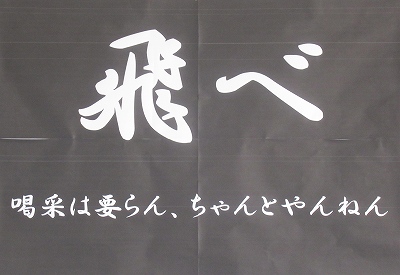 飛べ
喝采は要らん、ちゃんとやんねん